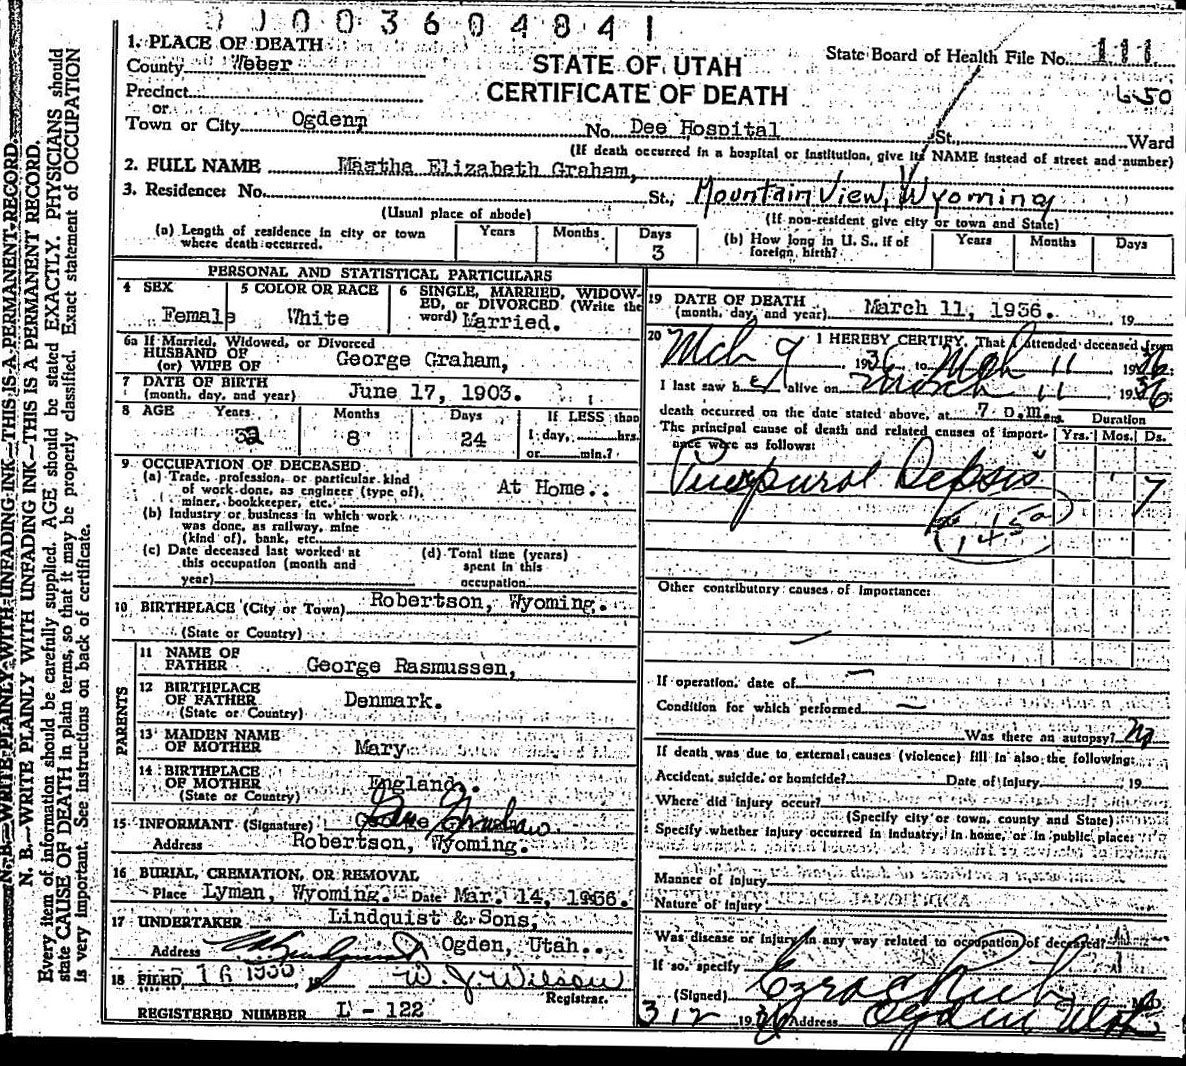 0 0 0 3 6 0 4 8 4 1
1. PLACE OF DEATH
County Weber
Precinct
or
Town or City Ogden
STATE OF UTAH
CERTIFICATE OF DEATH
State Board of Health File No. 111
650
No. Dee Hospital St., Ward
(If death occurred in a hospital or institution, give its NAME instead of street and number)
2. FULL NAME Martha Elizabeth Graham,
3. Residence: No. St., Mountain View, Wyoming
(Usual place of abode) (If non-resident give city or town and State)
(a) Length of residence in city or town where death occurred. Years Months Days 3
(b) How long in U. S., if of foreign birth? Years Months Days
PERSONAL AND STATISTICAL PARTICULARS
4 SEX Female
5 COLOR OR RACE White
6 SINGLE, MARRIED, WIDOWED, or DIVORCED (Write the word) Married.
6a If Married, Widowed, or Divorced
HUSBAND OF
(or) WIFE OF George Graham,
7 DATE OF BIRTH
(month, day, and year) June 17, 1903.
8 AGE Years Months Days If LESS than
32 8 24 1 day, hrs.
or min.?
9 OCCUPATION OF DECEASED
(a) Trade, profession, or particular kind
of work done, as engineer (type of), At Home..
miner, bookkeeper, etc.
(b) Industry or business in which work
was done, as railway, mine
(kind of), bank, etc.
(c) Date deceased last worked at this occupation (month and year)
(d) Total time (years) spent in this occupation
10 BIRTHPLACE (City or Town) Robertson, Wyoming.
(State or Country)
PARENTS
11 NAME OF FATHER George Rasmussen,
12 BIRTHPLACE OF FATHER Denmark.
(State or Country)
13 MAIDEN NAME OF MOTHER Mary
14 BIRTHPLACE OF MOTHER England.
(State or Country)
15 INFORMANT (Signature) George Graham
Address Robertson, Wyoming.
16 BURIAL, CREMATION, OR REMOVAL
Place Lyman, Wyoming. Date Mar. 14, 1936.
17 UNDERTAKER Lindquist & Sons,
Address Ogden, Utah..
18 FILED, 16 1936 19 W. J. Wilson
Registrar.
REGISTERED NUMBER L - 122
19 DATE OF DEATH
(month, day, and year) March 11, 1936. 19
20 I HEREBY CERTIFY, That I attended deceased from
Mch 9 1936, to Mch 11 1936
I last saw her alive on March 11 1936
death occurred on the date stated above, at 7 p.m.
The principal cause of death and related causes of importance were as follows: Duration Yrs. Mos. Ds.
Puerpural Sepsis 7
145a
Other contributory causes of importance:
If operation, date of
Condition for which performed
Was there an autopsy? No
If death was due to external causes (violence) fill in also the following:
Accident, suicide, or homicide? Date of injury 19
Where did injury occur?
(Specify city or town, county and State)
Specify whether injury occurred in industry, in home, or in public place:
Manner of injury
Nature of injury
Was disease or injury in any way related to occupation of deceased?
If so, specify
(Signed) Ezra C Rich M D
3 12 1936 Address Ogden Utah
N. B.—WRITE PLAINLY WITH UNFADING INK—THIS IS A PERMANENT RECORD.
N. B.—WRITE PLAINLY WITH UNFADING INK—THIS IS A PERMANENT RECORD.
Every item of information should be carefully supplied. AGE should be stated EXACTLY. PHYSICIANS should
state CAUSE OF DEATH in plain terms, so that it may be properly classified. Exact statement of OCCUPATION
is very important. See instructions on back of certificate.